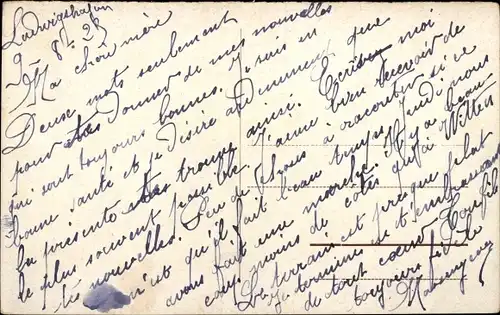 Ludwigshafen
9. 8. 23
Ma chère mère
Deux mots seulement
pour te donner de mes nouvelles
qui sont toujours bonnes. Je suis en
bonne santé et je désire ardemment que
la présente te trouve ainsi. Ecrives moi
le plus souvent possible. J'aime bien recevoir de
tes nouvelles. Peu de choses à raconter si ce
n'est qu'il fait beau temps. Jeudi nous
avons fait une marche. Il y a beau
coup moins de côtes qu'à Witten
Le terrain est presque plat
Je termine en t'embrassant
de tout coeur. Ton fils
toujours fidèle